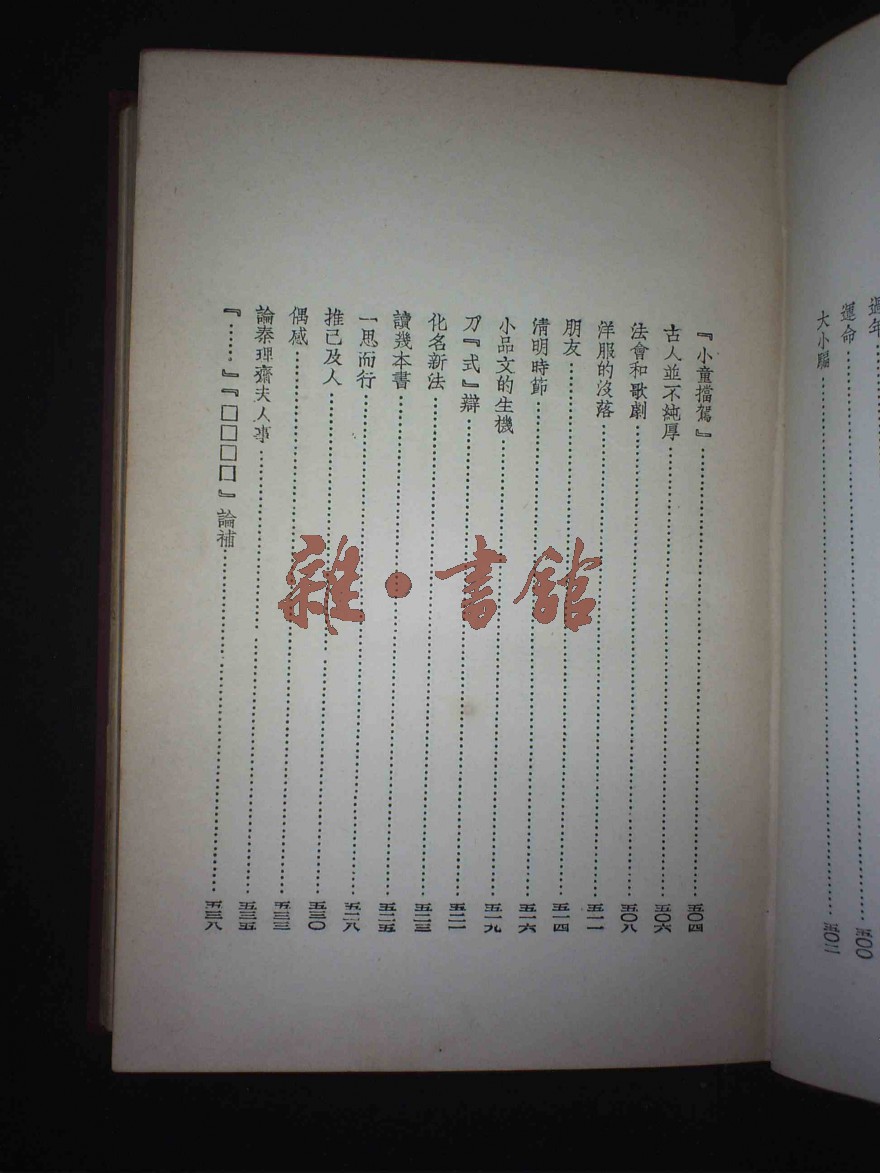 過年
運命……五〇〇
大小騙……五〇二
『小童擋駕』……五〇四
古人並不純厚……五〇六
法會和歌劇……五〇八
洋服的沒落……五一一
朋友……五一四
清明時節……五一六
小品文的生機……五一九
刀『式』辯……五二一
化名新法……五二三
讀幾本書……五二五
一思而行……五二八
推己及人……五三〇
偶感……五三三
論秦理齋夫人事……五三五
『……』『□□□□』論補……五三八
雜·書館